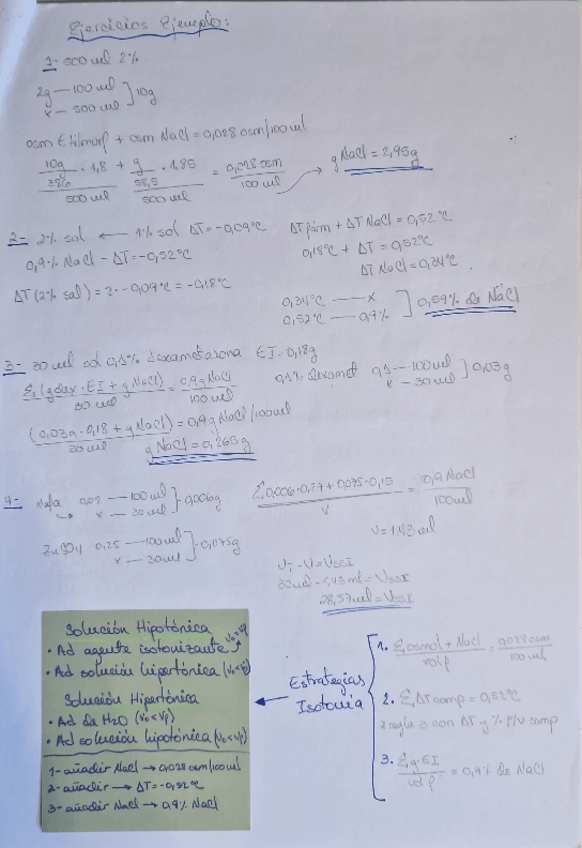 Ejercicios Ejemplo:
1- 500 ml 2%
2g — 100 ml
x — 500 ml } 10g
osm Etilmorf + osm NaCl = 0,028 osm/100 ml
10g/386 · 1,8 / 500 ml + g/58,5 · 1,85 / 500 ml = 0,028 osm / 100 ml → g NaCl = 2,95g
2- 2% sol ← 1% sol ΔT = -0,09°C
0,9% NaCl - ΔT = -0,52°C
ΔT (2% sal) = 2 · -0,09°C = -0,18°C
ΔT fárm + ΔT NaCl = 0,52°C
0,18°C + ΔT = 0,52°C
ΔT NaCl = 0,34°C
0,34°C — x
0,52°C — 0,9% ] 0,59% de NaCl
3- 30 ml sol 0,1% dexametasona EI = 0,18g
Σ (g dex · EI + g NaCl) / 30 ml = 0,9g NaCl / 100 ml
0,1% dexamet 0,1 — 100 ml
x — 30 ml ] 0,03g
(0,03g · 0,18 + g NaCl) / 30 ml = 0,9g NaCl/100 ml
g NaCl = 0,265g
4- Nafa 0,02 — 100 ml
x — 30 ml } 0,006g
ZnSO4 0,25 — 100 ml
x — 30 ml } 0,075g
Σ 0,006 · 0,27 + 0,075 · 0,15 / V = 0,9 NaCl / 100 ml
V = 1,43 ml
VT - V = VSSI
30 ml - 1,43 ml = VSSI
28,57 ml = VSSI
Solución Hipotónica
• Ad agente isotonizante V0=Vf
• Ad solución hipertónica (V0<Vf)
Solución Hipertónica
• Ad de H2O (V0<Vf)
• Ad solución hipotónica (V0<Vf)
1- añadir NaCl → 0,028 osm/100 ml
2- añadir → ΔT = -0,52°C
3- añadir NaCl → 0,9% NaCl
Estrategias
Isotonía
1. Σ osmol + NaCl / vol f = 0,028 osm / 100 ml
2. Σ ΔT comp = 0,52°C
2 regla 3 con ΔT y % p/v comp
3. Σ g · EI / vol f = 0,9% de NaCl